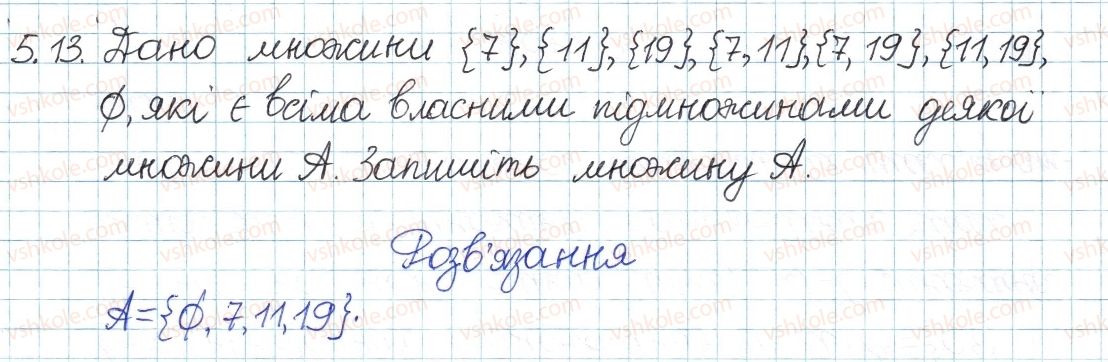 5.13. Дано множини {7}, {11}, {19}, {7, 11} {7, 19}, {11, 19},
∅, які є всіма власними підмножинами деякої
множини А. Запишіть множину А.
Розв'язання
А={∅, 7, 11, 19}.